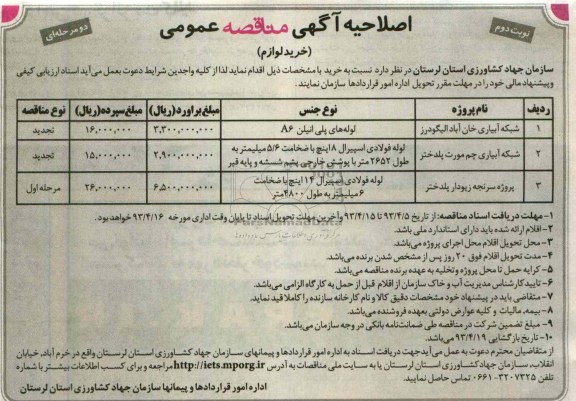 نوبت دوم
اصلاحیه آگهی مناقصه عمومی
دو مرحله‌ای
(خرید لوازم)
سازمان جهاد کشاورزی استان لرستان در نظر دارد نسبت به خرید با مشخصات ذیل اقدام نماید لذا از کلیه واجدین شرایط دعوت بعمل می آید اسناد ارزیابی کیفی
وپیشنهاد مالی خود را در مهلت مقرر تحویل اداره امور قراردادها سازمان نمایند.
ردیف نام پروژه نوع جنس مبلغ براورد(ریال) مبلغ سپرده(ریال) نوع مناقصه
۱ شبکه آبیاری خان آباد الیگودرز لوله‌های پلی اتیلن A۶ ۳,۳۰۰,۰۰۰,۰۰۰ ۱۶,۰۰۰,۰۰۰ تجدید
۲ شبکه آبیاری چم مورت پلدختر لوله فولادی اسپیرال ۸ اینچ با ضخامت ۵/۶ میلیمتر به
طول ۲۶۵۲ متر با پوشش خارجی پشم شسشه و پایه قیر ۲,۹۰۰,۰۰۰,۰۰۰ ۱۵,۰۰۰,۰۰۰ تجدید
۳ پروژه سرنجه زیودار پلدختر لوله فولادی اسپیرال ۱۴ اینچ با ضخامت
۶ میلیمتر به طول ۴۸۰۰متر ۶,۵۰۰,۰۰۰,۰۰۰ ۲۶,۰۰۰,۰۰۰ مرحله اول
۱- مهلت دریافت اسناد مناقصه: از تاریخ ۹۳/۴/۵ تا ۹۳/۴/۱۵ وآخرین مهلت تحویل اسناد تا پایان وقت اداری مورخه ۹۳/۴/۱۶ خواهد بود.
۲- اقلام ارائه شده باید دارای استاندارد ملی باشد.
۳- محل تحویل اقلام محل اجرای پروژه می‌باشد.
۴- مدت تحویل اقلام فوق ۲۰ روز پس از مشخص شدن برنده می‌باشد.
۵- کرایه حمل تا محل پروژه وتخلیه به عهده برنده مناقصه می‌باشد.
۶- تایید کارشناس مدیریت آب و خاک سازمان از اقلام قبل از حمل به کارگاه الزامی می‌باشد.
۷- متقاضی باید در پیشنهاد خود مشخصات دقیق کالا و نام کارخانه سازنده را کاملا قید نماید.
۸- بیمه، مالیات و کلیه عوارض دولتی بعهده فروشنده می‌باشد.
۹- مبلغ تضمین شرکت در مناقصه طی ضمانت‌نامه بانکی در وجه سازمان می‌باشد.
۱۰- تاریخ بازگشایی ۹۳/۴/۱۹ می‌باشد.
از متقاضیان محترم دعوت به عمل می‌آید جهت دریافت اسناد به اداره امور قراردادها و پیمانهای سازمان جهاد کشاورزی استان لرستان واقع در خرم آباد، خیابان
انقلاب، سازمان جهاد کشاورزی استان لرستان یا به سایت ملی مناقصات به آدرس http://iets.mporg.ir مراجعه و برای کسب اطلاعات بیشتر با شماره
تلفن ۳۲۰۷۳۲۵-۰۶۶۱ تماس حاصل نمایید.
اداره امور قراردادها و پیمانها سازمان جهاد کشاورزی استان لرستان